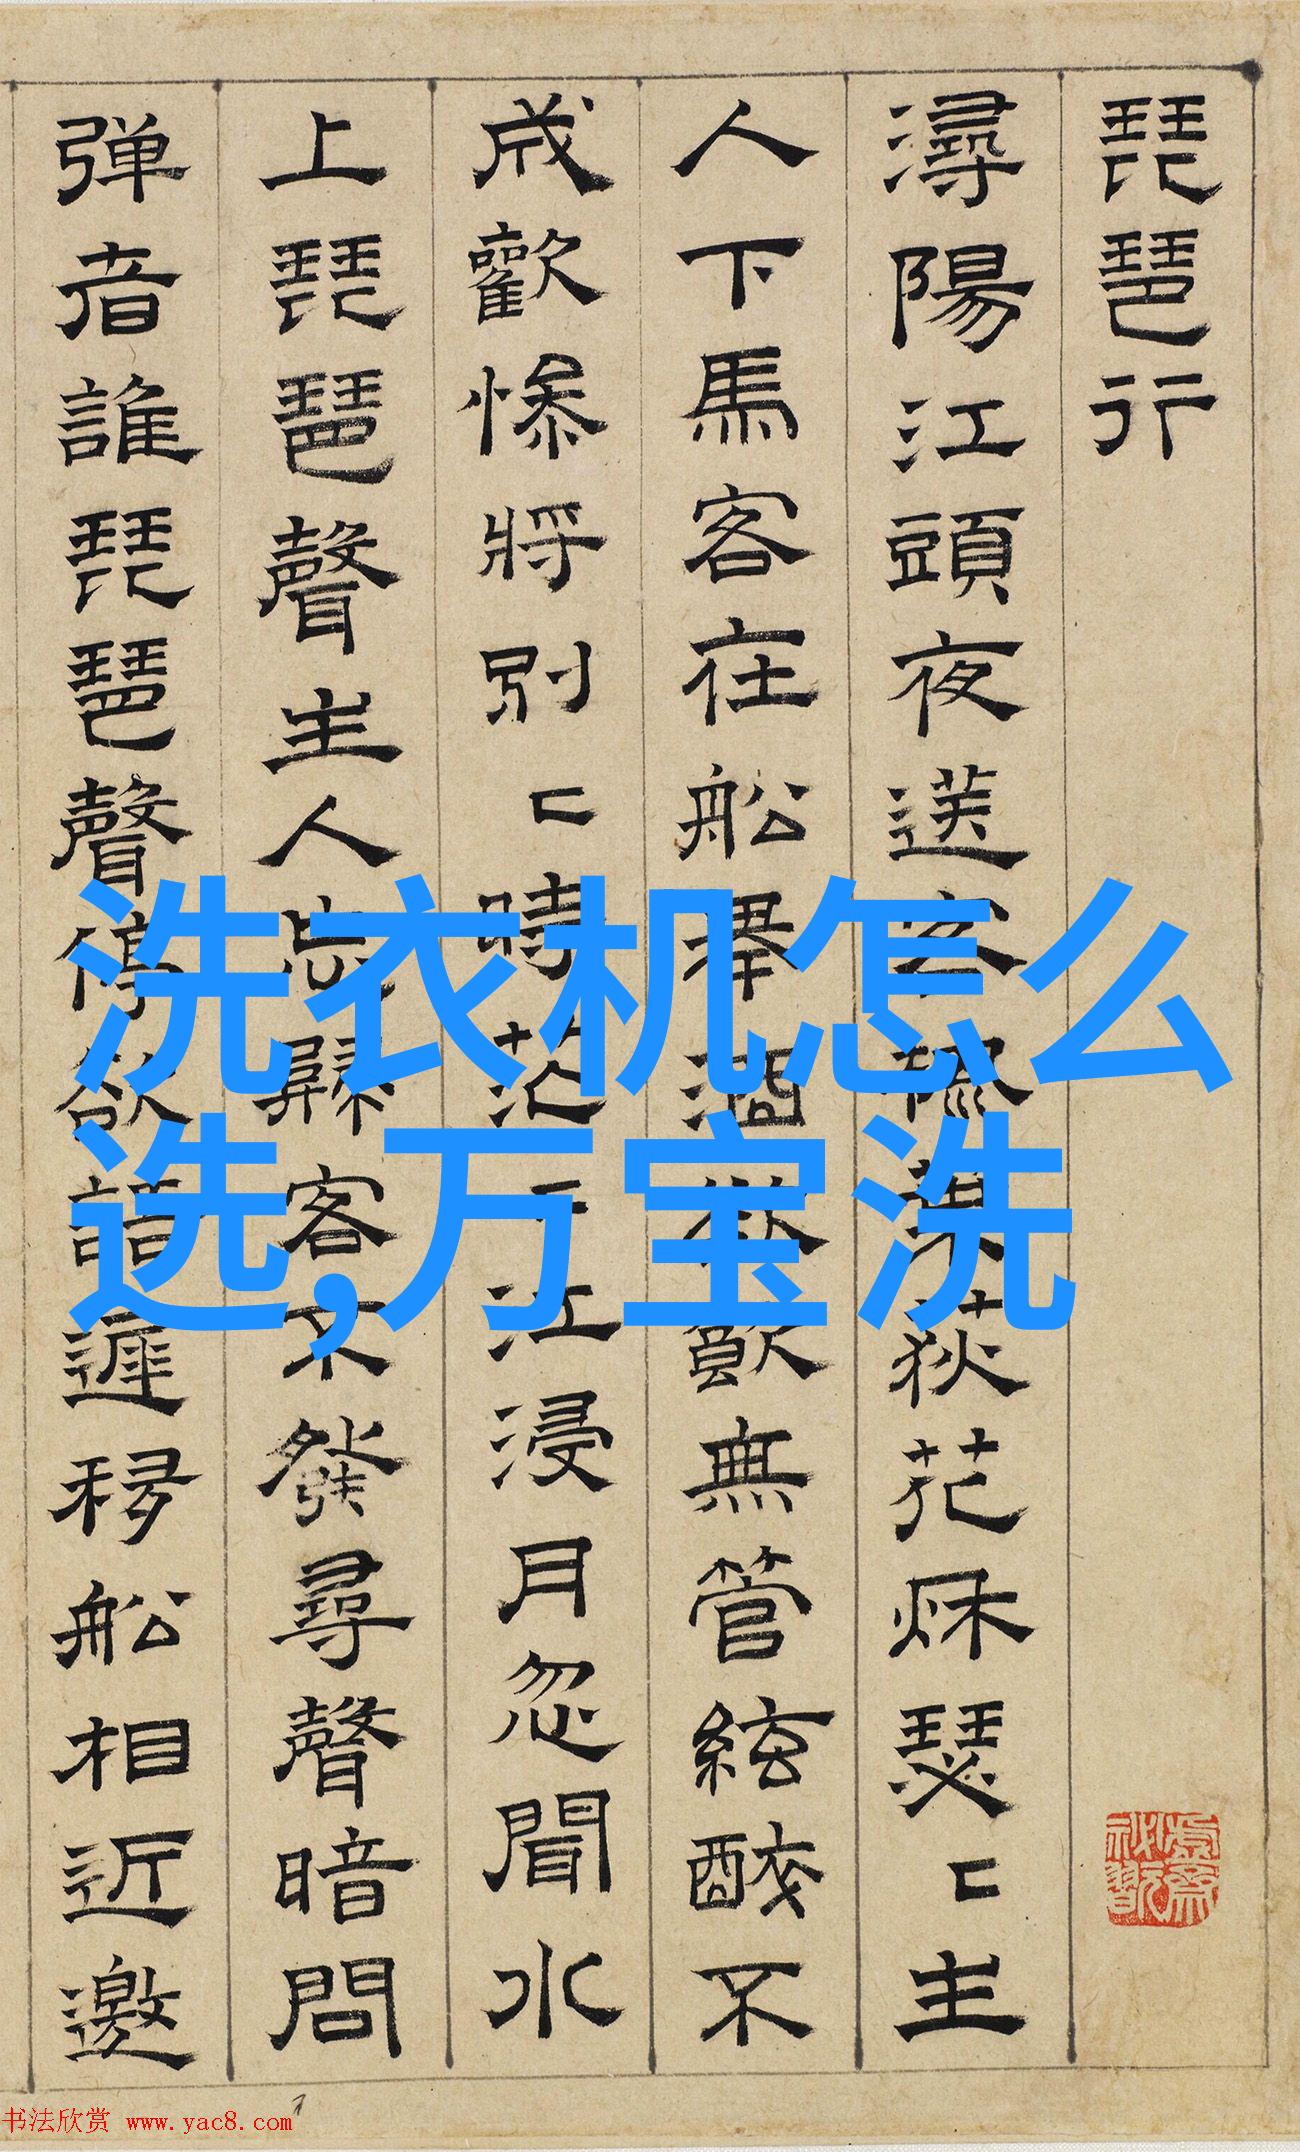 琵琶行
潯陽江頭夜送客楓葉荻花秌瑟〻主
人下馬客在船舉酒欲飲無管絃醉不
成歡慘將別〻時茫〻江浸月忽聞水
上琵琶聲主人忘歸客不發尋聲暗問
彈者誰琵琶聲停欲語遲移船相近邀
洗衣机怎么
选,万宝洗
书法欣赏 www.yac8.com